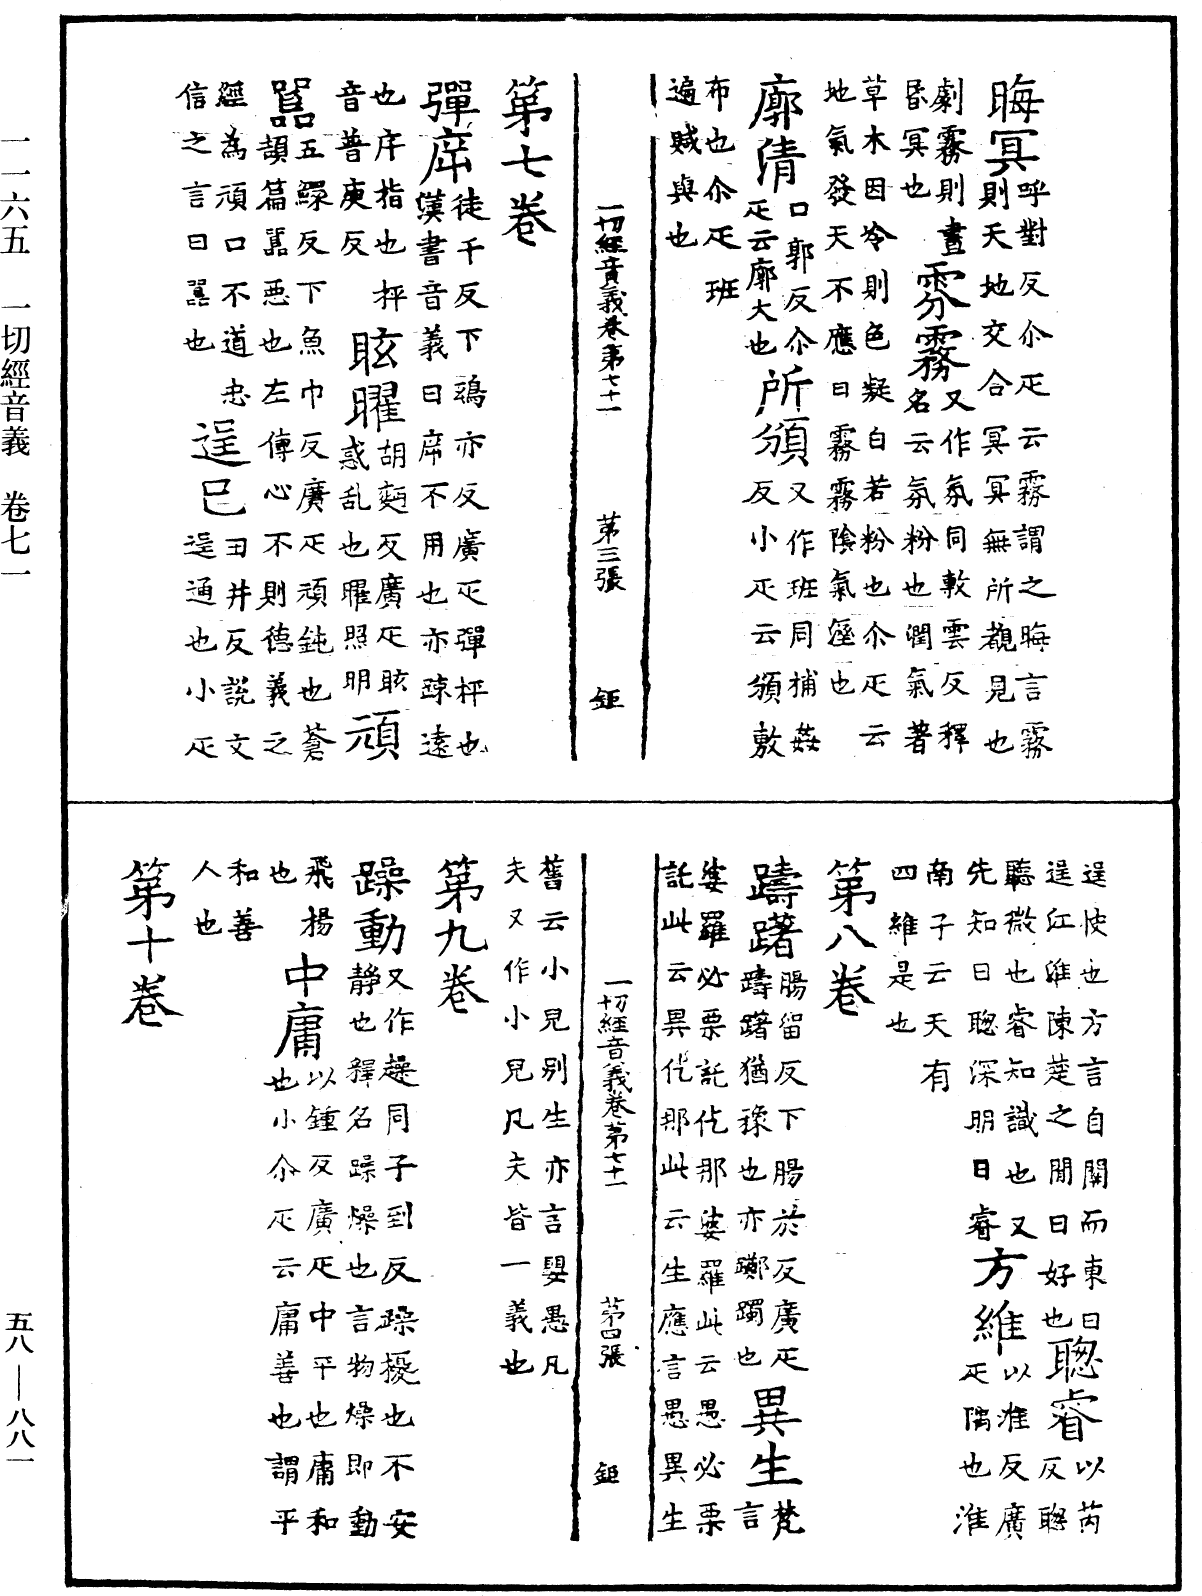 晦冥 呼對反尒疋云霧謂之晦言霧
則天地交合冥冥無所覩見也
劇霧則晝
昏冥也
雰霧 又作氛同敷雲反釋
名云氛粉也潤氣著
草木因冷則色凝白若粉也尒疋云
地氣發天不應曰霧霧陰氣溼也
廓清 口郭反尒
疋云廓大也
所頒 又作班同補姦
反小疋云頒敷
布也尒疋班
遍賦與也
一切經音義卷第七十一 第三張 鉅
第七卷
彈㡿 徒干反下鵄亦反廣疋彈枰也
漢書音義曰㡿不用也亦疎遠
也㡿指也枰
音普庚反
眩曜 胡麪反廣疋眩
惑乱也曜照明
頑嚚 五鰥反下魚巾反廣疋頑鈍也蒼
頡篇嚚惡也左傳心不則德義之
經為頑口不道忠
信之言曰嚚也
逞已 丑井反説文
逞通也小疋
逞快也方言自關而東曰
逞江淮陳楚之閒曰好也
聰睿 以芮
反聰
聽微也睿知識也又
先知曰聰深明曰睿
方維 以淮反廣
疋隅也淮
南子云天有
四維是也
第八卷
躊躇 腸留反下腸於反廣疋
躊躇猶豫也亦躑躅也
異生 梵
言
婆羅必栗託仡那婆羅此云愚必栗
託此云異仡那此云生應言愚異生
一切經音義卷第七十一 第四張 鉅
舊云小兒別生亦言嬰愚凡
夫又作小兒凡夫皆一義也
第九卷
躁動 又作趮同子到反躁擾也不安
靜也釋名躁燥也言物燥即動
飛揚
也
中庸 以鍾反廣疋中平也庸和
也小尒疋云庸善也謂平
和善
人也
第十卷
一一六五 一切經音義 卷七一
五八—八八一